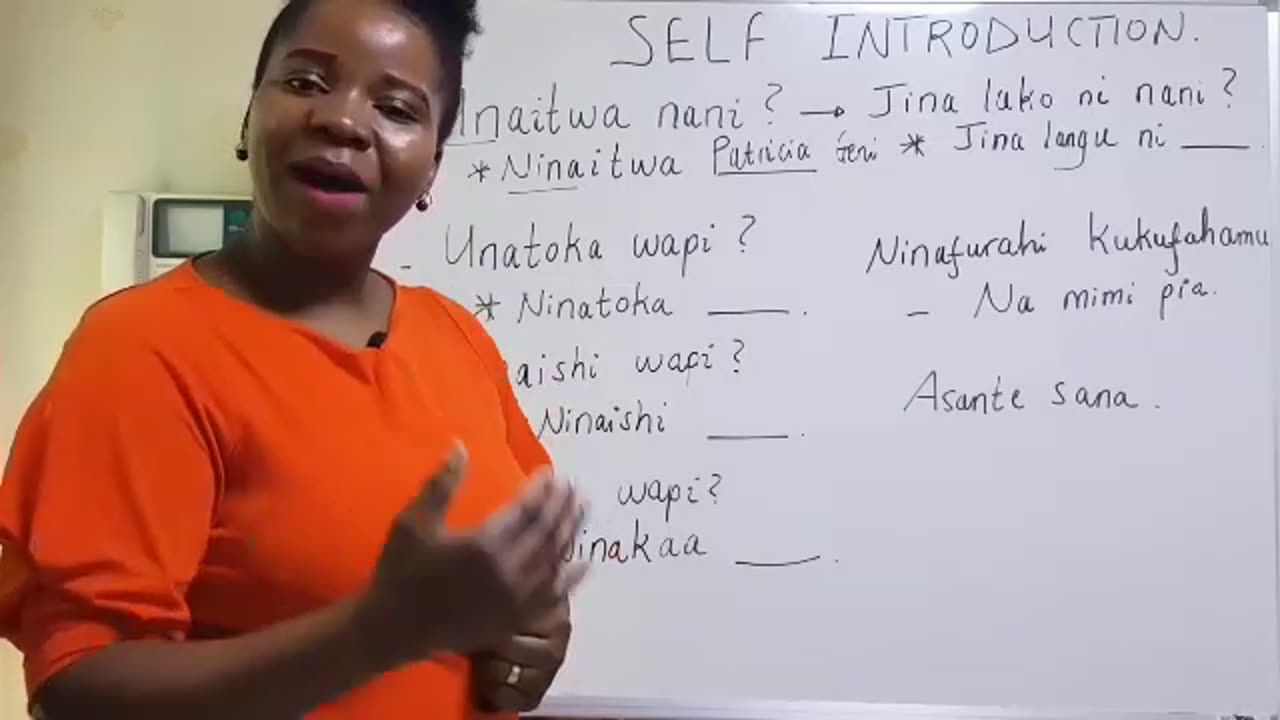 SELF INTRODUCTION.
Unaitwa nani? → Jina lako ni nani?
* Ninaitwa Patricia * Jina langu ni ___.
- Unatoka wapi?
* Ninatoka ___.
wapi?
Ninaishi ___.
wapi?
Ninakaa ___.
Ninafurahi kukufahamu
- Na mimi pia.
Asante sana.